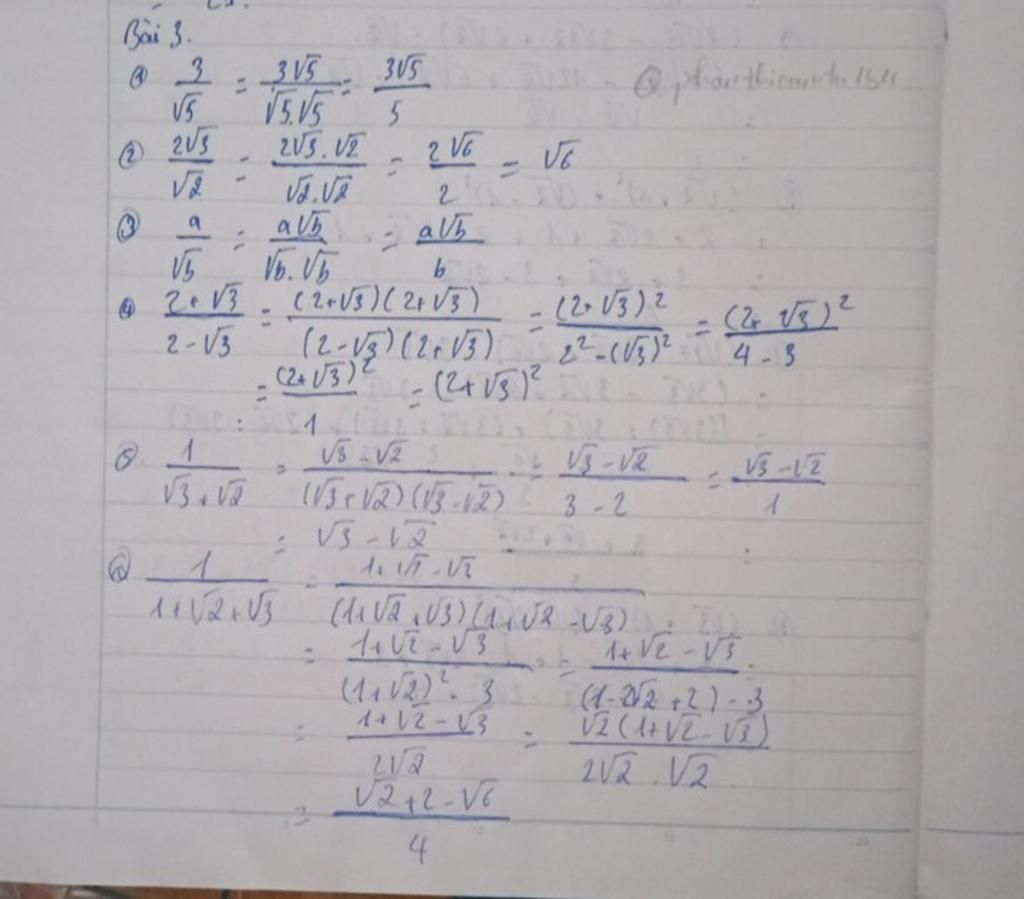 Bài 3.
① 3/√5 = 3√5/√5.√5 = 3√5/5
② 2√3/√2 = 2√3.√2/√2.√2 = 2√6/2 = √6
③ a/√b = a√b/√b.√b = a√b/b
④ 2+√3/2-√3 = (2+√3)(2+√3)/(2-√3)(2+√3) = (2+√3)²/2²-(√3)² = (2+√3)²/4-3
= (2+√3)²/1 = (2+√3)²
⑤ 1/√3+√2 = √3-√2/(√3+√2)(√3-√2) = √3-√2/3-2 = √3-√2/1
= √3-√2
⑥ 1/1+√2+√3 = 1+√2-√3/(1+√2+√3)(1+√2-√3)
= 1+√2-√3/(1+√2)²-3 = 1+√2-√3/(1-2√2+2)-3
= 1+√2-√3/2√2 = √2(1+√2-√3)/2√2.√2
= √2+2-√6/4